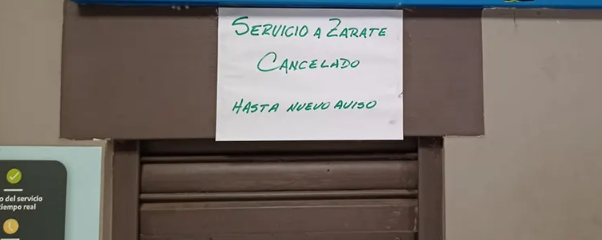 SERVICIO A ZARATE
CANCELADO
HASTA NUEVO AVISO
del servicio
tiempo real